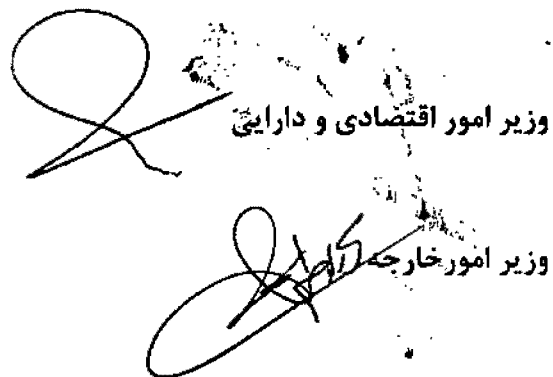 وزیر امور اقتصادی و دارایی
وزیر امورخارجه